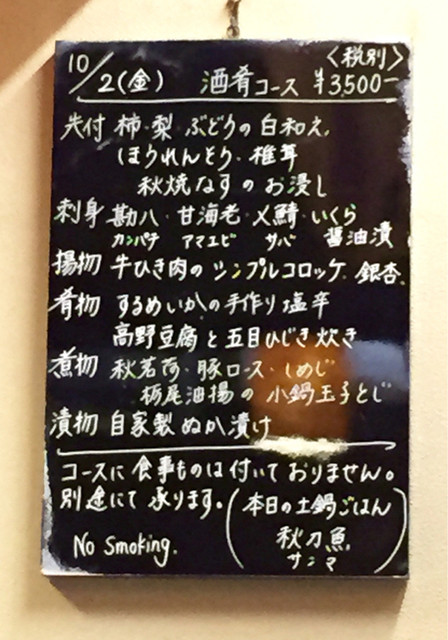 〈税別〉
10/2(金) 酒肴コース ¥3,500-
先付 柿・梨 ぶどうの白和え
ほうれんそう・椎茸
秋焼なすのお浸し
刺身 勘八・甘海老・〆鯖・いくら
カンパチ アマエビ サバ 醤油漬
揚物 牛ひき肉のシンプルコロッケ 銀杏
肴物 するめいかの手作り塩辛
高野豆腐と五目ひじき炊き
煮物 秋茗荷・豚ロース・しめじ
栃尾油揚の小鍋玉子とじ
漬物 自家製ぬか漬け
コースに食事ものは付いておりません。
別途にて承ります。(本日の土鍋ごはん
秋刀魚
サンマ)
No Smoking.